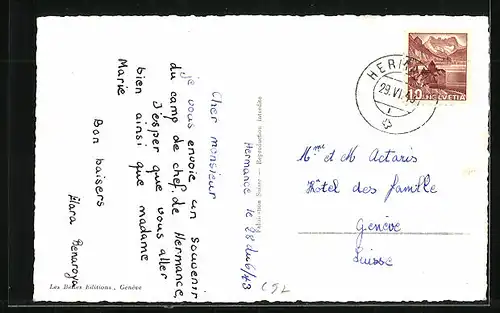 Hermance le 28 du 6/43
Cher monsieur
je vous envoie un souvenir
du camp de chef de Hermance
J'esper que vous aller
bien ainsi que madame
Marie
Bon baisers
Benaroya
Les Belles Editions, Genève
Edition Suisse — Reproduction interdite
HERMANCE
29.VI.43
HELVETIA
Mme et M Actaris
Hôtel des famille
Genève
Suisse